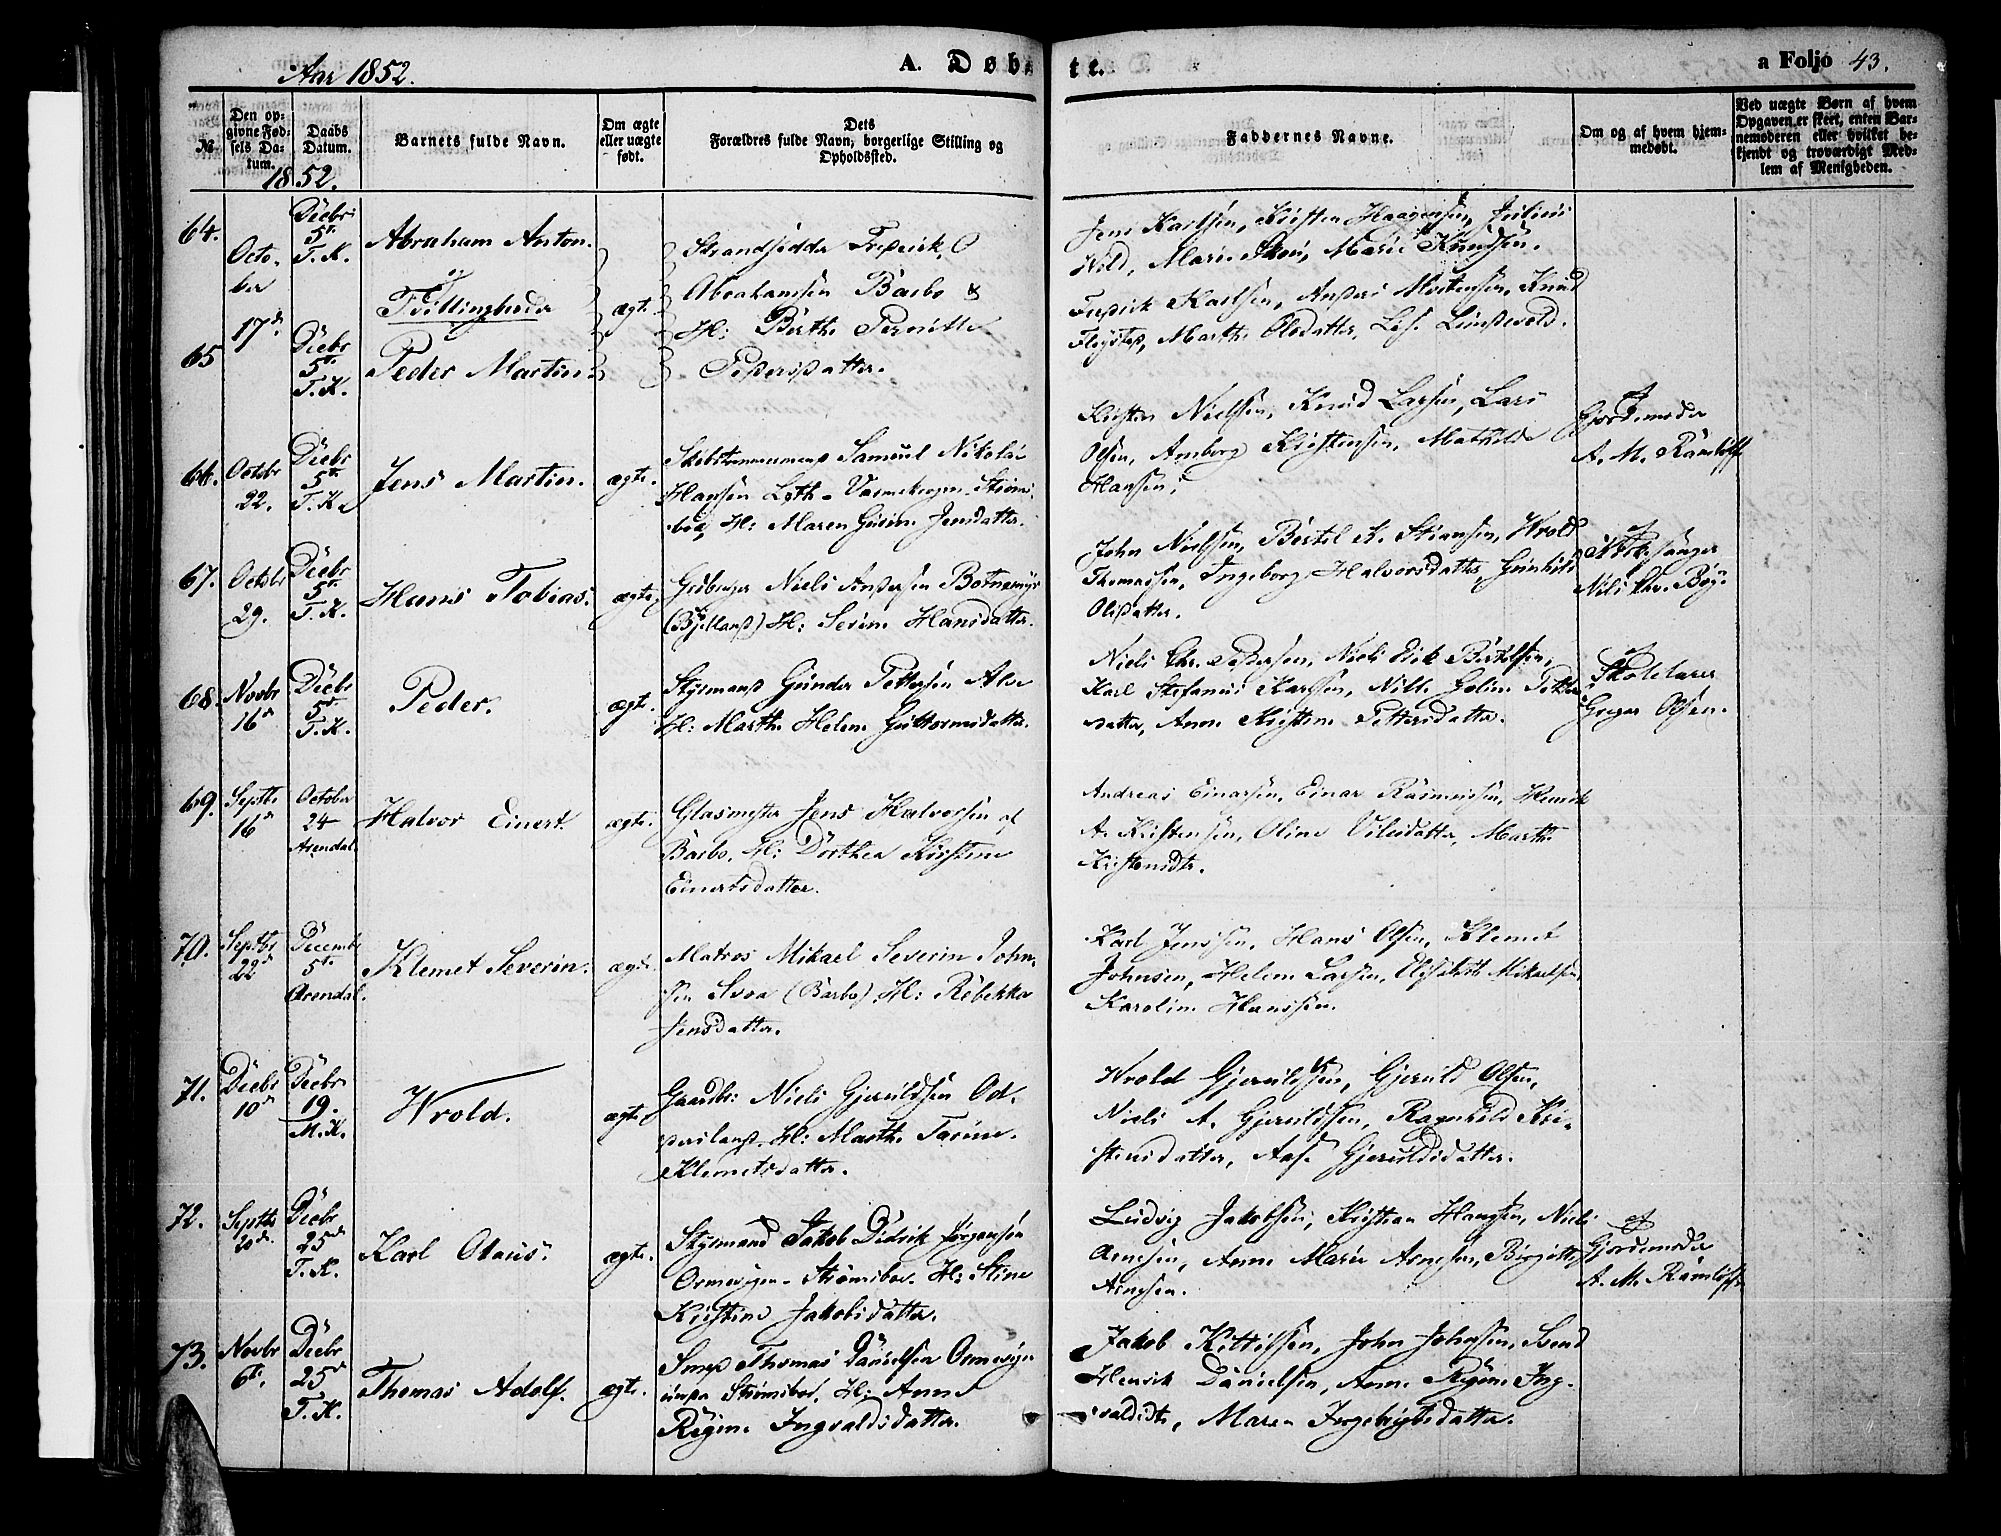 Aar 1852.
A. Døbte.
a Foljo 43.
№
Den opgivne Fødsels Datum.
Daabs Datum.
Barnets fulde Navn.
Om ægte eller uægte født.
Dets Forældres fulde Navn, borgerlige Stilling og Opholdssted.
Faddernes Navne.
Om og af hvem hjemmedøbt.
Ved uægte Børn af hvem Opgaven er skeet, enten Barnemoderen eller hvilket bekjendt og troværdigt Medlem af Menigheden.
1852.
64.
Octo-
ber
17de
Dcebr
5te
T. K.
Abraham Anton.
og
Tvillingbrødre
65
Dcebr
5te
T. K.
Peder Martin.
ægte
Strandsidder Frederik O
Abrahamsen Barbo &
H: Birthe Pernille
Pedersdatter.
Jens Karlsen, Kristen Haagensen, Julius
Wold, Marie Skou, Marie Knudsen.
Fredrik Karlsen, Anders Mortensen, Knud
Marthe Olsdatter,
66.
Octobr
22.
Dcebr
5te
T. K.
Jens Martin.
ægte.
Skibstømmermand Samuel Nikolai
Hansen Leth - Strøms-
boe, H: Maren Gurine Jensdatter.
Kristen Nielsen, Knud Larsen, Lars
Olsen, Amborg Kristensen, Mathilde
Hansen.
af
Gjordemoder
A. M. Ramløff
67.
Octobr
29.
Dcebr
5te
T. K.
Hans Tobias.
ægte.
Gaardbruger Niels Andersen Botnemyr
(Bjelland) H: Serine Hansdatter.
John Nielsen, Bertel K. Stiansen, Wrold
Thomassen, Ingeborg Halvorsdatter, Gunhild
Olsdatter.
af
Kirkesanger
Niels Chr. Bøy.
68.
Novbr
16de
Dcebr
5te
T. K.
Peder.
ægte.
Styrmand Gunder Pettersen Alve
H: Marthe Helene Guttormsdatter.
Niels Chr. Pedersen, Niels Eik Bertelsen,
Karl Stefanus Karlsen, Nille Goline Petters-
datter, Anne Kristine Pettersdatter.
af
Skolelærer
Greger Olsen.
69.
Septbr
16de
October
24
Arendal
Halvor Einert.
ægte.
Glasmester Jens Halvorsen af
Barbo. H: Dorthea Kristine
Einertsdatter.
Andreas Einarsen, Einar Rasmussen, Henrik
A. Kristensen, Oline Marthe
Kristensdtr.
70.
Septbr
22de
Decembr
5te
Arendal.
Klemet Severin.
ægte.
Matros Mikael Severin John-
sen (Barbo). H: Rebekka
Jensdatter.
Karl Jenssen, Hans Olsen, Klemet
Johnsen, Helene Larsen, Elisabeth Mikaelsen
Karoline Hanssen.
71.
Dcebr
10de
Dcebr
19.
M. K.
Wrold.
ægte.
Gaardbr: Niels Gjeruldsen Od-
dersland. H: Marthe Tarine
Klemetsdatter.
Wrold Gjeruldsen, Gjeruld Olsen,
Niels A. Gjeruldsen, Ragnhild Kri-
stensdatter, Aase Gjeruldsdatter.
72.
Septbr
20de
Dcebr
25de
T. K.
Karl Olaus.
ægte.
Styrmand Jakob Didrik Jørgensen
Ormevigen - Strømsboe. H: Stine
Kristine Jakobsdatter.
Ludvig Jakobsen, Kristian Hansen, Niels
Arnesen, Anne Marie Arnesen, Birgitte
Arnesen.
af
Gjordemoder
A. M. Ramløff
73.
Novbr
6te.
Dcebr
25de
T. K.
Thomas Adolf.
ægte.
Smed Thomas Danielsen Ormevigen
Strømsboe. H: Anne
Regine Ingvaldsdatter.
Jakob Kittilsen, John Johnsen, Svend
Henrik Danielsen, Anne Regine Ing-
valdsdtr, Maren Ingebrigtsdatter.